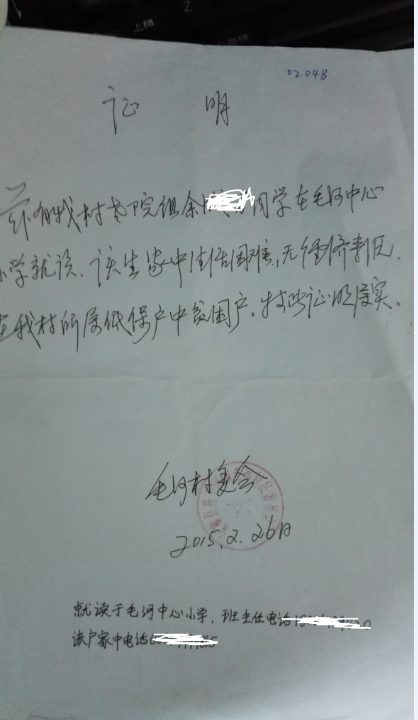 0204B
证 明
兹有我村书院组余 同学在毛河中心
小学就读，该生家中生活困难，无经济来源，
在我村所属低保户中贫困户。特此证明属实。
毛河村委会
2015.2.26日
就读于毛河中心小学，班主任电话
该户家中电话